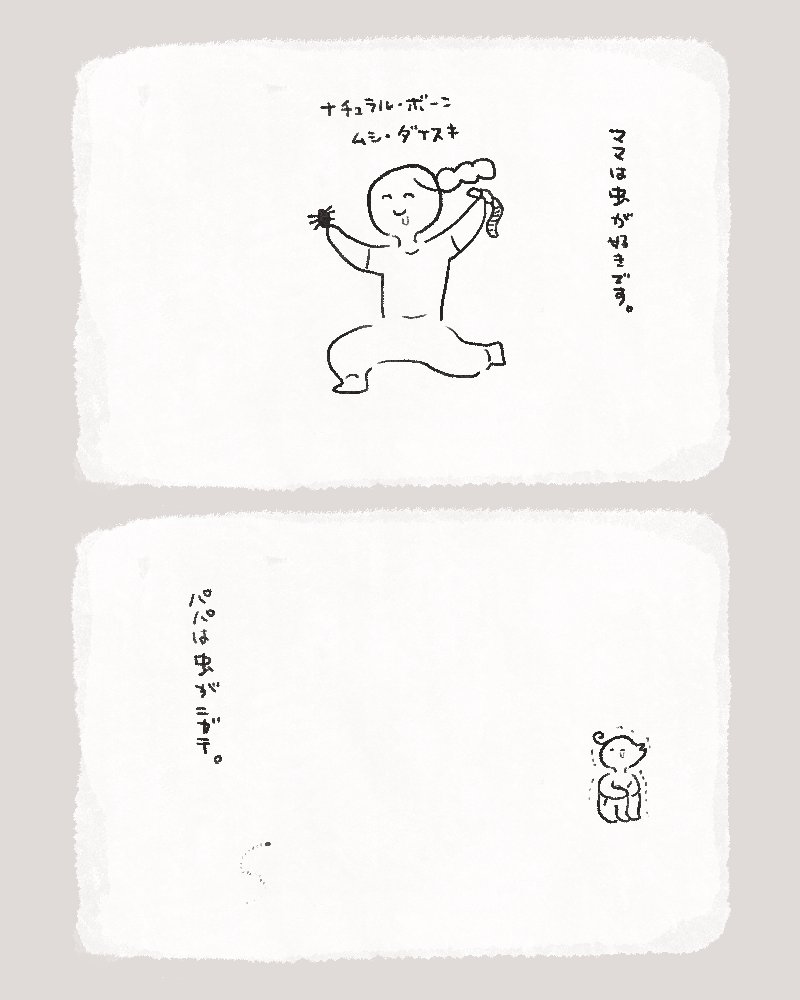 ママは虫が好きです。
ナチュラル・ボーン
ムシ・ダイスキ
パパは虫がニガテ。